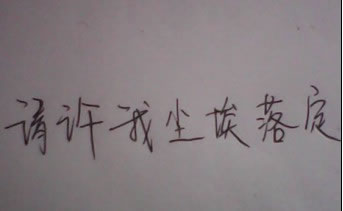 请许我尘埃落定